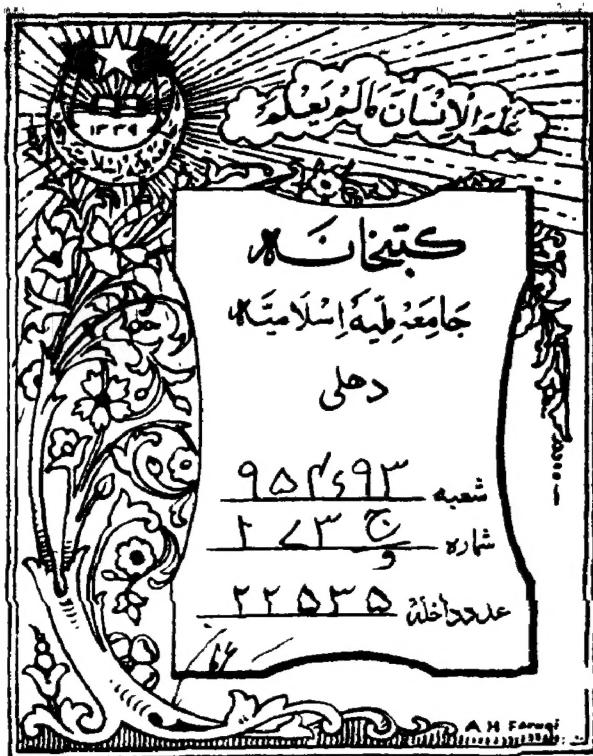 ۱۳۳۹
عَلَّمَ الْاِنْسَانَ مَالَمْ يَعْلَمْ
كتبخانہ
جَامِعَہ مِلّیَہ اِسْلَامِیَّہ
دهلی
شعبه ۹۵۴٫۹۳
شماره ۲۷۳ ج
و
عدد داخلہ ۲۲۵۳۵
A H Faruqi